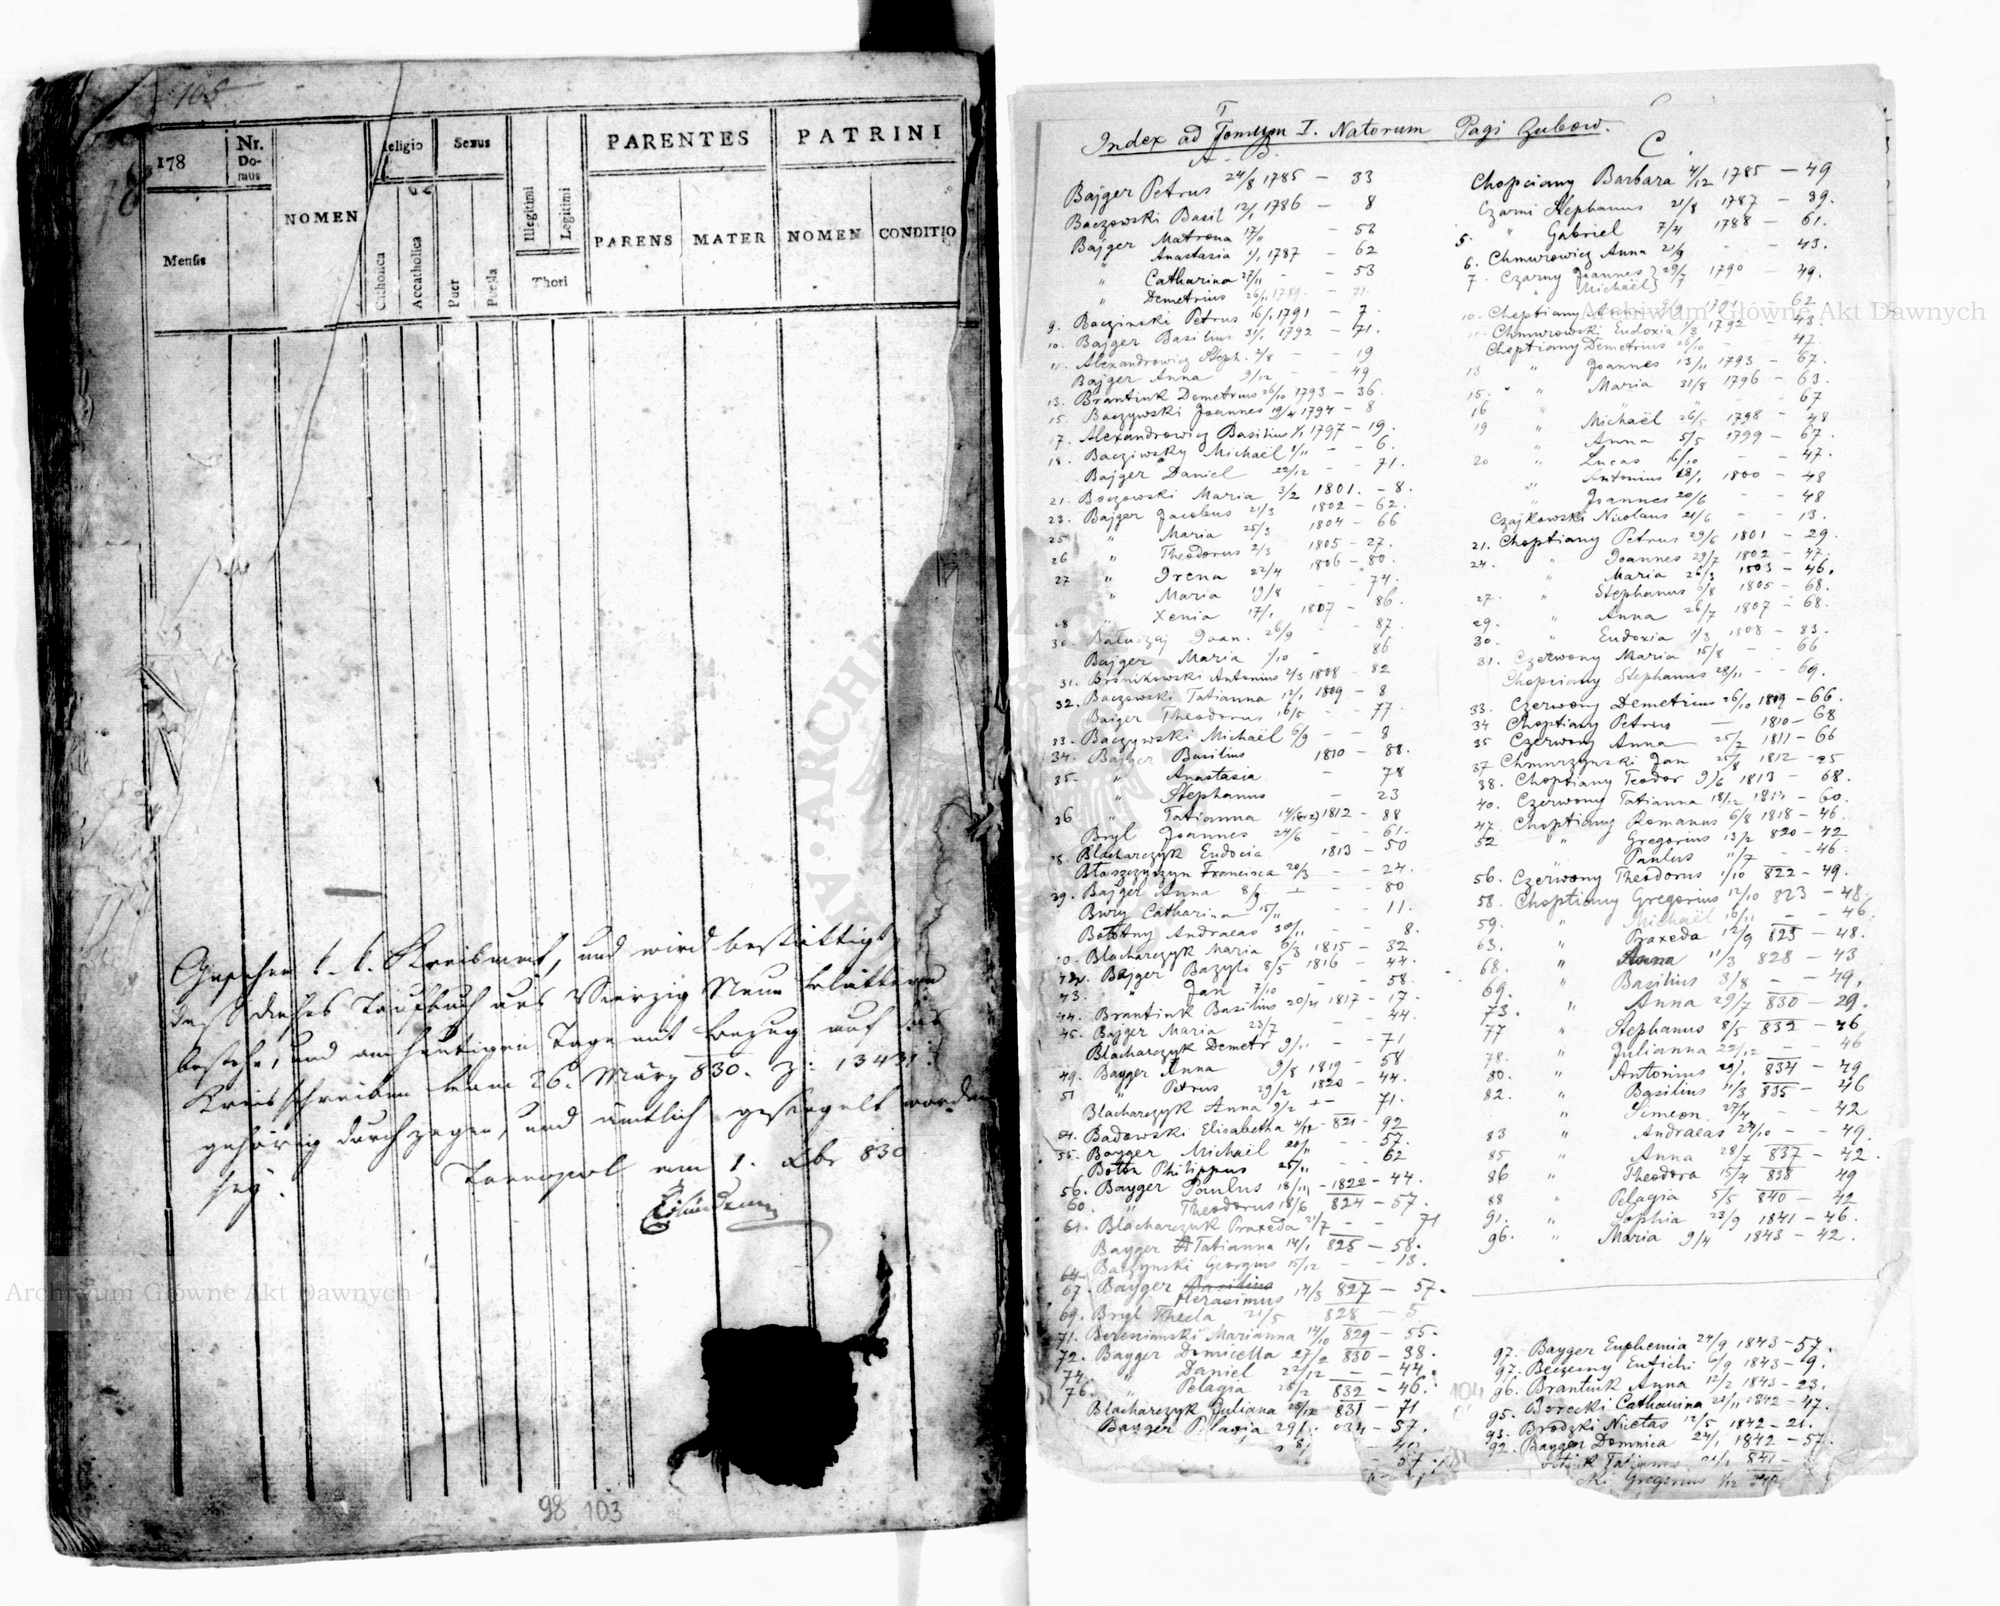 105
178
Nr.
Do-
mus
NOMEN
Religio
Sexus
PARENTES
PATRINI
Mensis
Catholica
Accatholica
Puer
Puella
Illegitimi
Legitimi
Thori
PARENS
MATER
NOMEN
CONDITIO
Gesehen k. k. Kreisamt, und wird bestättigt,
daß dieses Taufbuch aus Vierzig Neun Blättern
bestehe, und am heutigen Tage mit Bezug auf das
Kreisschreiben vom 26. März 830. Z: 13431
gehörig durchzogen, und ämtlich gesiegelt worden
sey.
Tarnopol am 1. 830
98 103
Index ad Tomum I. Natorum Pagi Zubow.
A - B.
Bajger Petrus 24/8 1785 - 33
Baczowski Basil 12/1 1786 - 8
Bajger Matrona 17/11 - 53
" Anastasia 1/1 1787 - 62
" Catharina 27/11 - - 53
" Demetrius 26/11 1789 - 71
9. Baczinski Petrus 16/1 1791 - 7
10. Bajger Basilius 31/1 1792 - 71.
11. Alexandrowicz Steph. 2/8 - - 19
Bajger Anna 9/12 - - 49
13. Brantiuk Demetrius 26/10 1793 - 36.
15. Baczywski Joannes 19/4 1794 - 8
17. Alexandrowicz Basilius 1/1 1797 - 19.
18. Bacziwsky Michaël 1/11 - - 6.
Bajger Daniel 22/12 - - 71.
21. Boczowski Maria 3/2 1801. - 8.
23. Bajger Jacobus 21/3 1802 - 62.
25 " Maria 25/3 1804 - 66
26 " Theodorus 2/3 1805 - 27.
27 " Irena 22/4 1806 - 80.
" Maria 19/8 - - 74.
28 " Xenia 17/1 1807 - 86.
30. Joan. 26/9 - - 87.
Bajger Maria 1/10 - 86
31. Bronikowski Antonius 2/3 1808 - 82
32. Baczowski Tatianna 12/1 1809 - 8
Bajger Theodorus 16/5 - - 77.
33. Baczywski Michaël 6/9 - - 8
34. Bajger Basilius 1810 - 88.
35. " Anastasia - 78
" Stephanus - 23
36 " Tatianna 1812 - 88
Bryl Joannes 24/6 - - 61.
Blacharczyk Eudocia 1813 - 50
Błaszczyszyn Francisca 20/3 - - 24.
39. Bajger Anna 8/9 - - 80
Bwry Catharina 15/11 - - 11.
Andraeas 30/11 - - 8.
Blacharczyk Maria 6/3 1815 - 32
42. Bajger Bazyli 8/5 1816 - 44.
43. " Jan 7/10 - - 58.
44. Brantiuk Basilius 20/4 1817 - 17.
45. Bajger Maria 23/7 - - 44.
Blacharczyk Demetr 9/11 - - 71
49. Bayger Anna 9/8 1819 - 58
51 " Petrus 29/2 1820 - 44.
Blacharczyk Anna 9/2 - - 71.
54. Badowski Elisabetha 821 - 92
55. Bayger Michaël - - 57.
Philippus 25/11 - - 62
56. Bayger Paulus 18/11 - 1822 - 44.
60. " Theodorus 18/6 824 - 57.
61. Blacharczuk Praxeda 21/7 - - 71
Bayger Tatianna 14/1 825 - 58.
64. Baczynski Georgius 15/12 - - 13.
67. Bayger Basilius Herasimus 14/3 827 - 57.
69. Bryl Thecla 21/5 828 - 5
71. Marianna 14/10 829 - 55.
72. Bayger Domicella 27/2 830 - 38.
74. " Daniel 22/12 - - 44.
76. " Pelagia 28/2 832 - 46.
Blacharczyk Juliana 831 - 71
Bayger Pelagia 834 - 57.
- 57
C.
Chopciany Barbara 4/12 1785 - 49
Czarni Stephanus 21/8 1787 - 39.
5. " Gabriel 7/4 1788 - 61.
6. Chmurowicz Anna 21/9 - - 43.
7. Czarny Joannes } 29/7 1790 - 49.
" Michaël }
10. Choptiany 1791 - 62
11. Chmurowski Eudoxia 1/3 1792 - 43.
Choptiany Demetrius 26/10 - 47.
13 " Joannes 13/11 1793 - 67.
15. " Maria 31/8 1796 - 63.
16 " - 67
19 " Michaël 26/5 1798 - 48
" Anna 5/5 1799 - 67.
20 " Lucas 16/10 - - 47.
" Antonius 18/1 1800 - 48
" Joannes 20/6 - - 48
Czajkowski Nicolaus 21/6 - - 13.
21. Choptiany Petrus 29/6 1801 - 29.
24. " Joannes 29/7 1802 - 47.
" Maria 26/3 1803 - 46.
27. " Stephanus 9/8 1805 - 68.
29. " Anna 26/7 1807 - 68.
30. " Eudoxia 1/3 1808 - 83.
31. Czerwony Maria 15/8 - - 66
Chopciany Stephanus 28/11 - - 69.
33. Czerwony Demetrius 26/10 1809 - 66.
34 Choptiany Petrus — 1810 - 68
35 Czerwony Anna 25/7 1811 - 66
37 Chmurzynski Jan 25/8 1812 - 85
38. Choptiany Teodor 9/6 1813 - 68.
40. Czerwony Tatianna 18/12 1814 - 60.
47. Choptiany Romanus 6/8 1818 - 46.
52 " Gregorius 13/2 820 - 42
Paulus 11/7 - - 46.
56. Czerwony Theodorus 1/10 822 - 49.
58. Choptiany Gregorius 12/10 823 - 48.
59. " Michaël 16/11 - - 46.
63. " Praxeda 12/9 825 - 48.
68. " Anna 11/3 828 - 43
69. " Basilius 3/8 - - 49.
73. " Anna 29/7 830 - 29.
77 " Stephanus 8/5 832 - 46
78. " Julianna 22/12 - - 46
80. " Antonius 29/1 834 - 49
82. " Basilius 11/3 835 - 46
" Simeon 27/4 - - 42
83 " Andraeas 24/10 - - 49.
85 " Anna 28/7 837 - 42.
86 " Theodora 15/4 838 49
88 " Pelagia 5/5 840 - 42
91. " Sophia 23/9 1841 - 46.
96. " Maria 9/4 1843 - 42.
97. Bayger Euphemia 24/9 1843 - 57.
97. Eutichi 6/9 1843 - 9.
96. Brantiuk Anna 12/2 1843 - 23.
95. Borecki Catharina 22/11 1842 - 47.
93. Brodzki Nicetas 12/5 1842 - 21.
92. Bayger Domnica 24/1 1842 - 57.
841 -
Gregorius 1/12
104
Archiwum Główne Akt Dawnych
Archiwum Główne Akt Dawnych